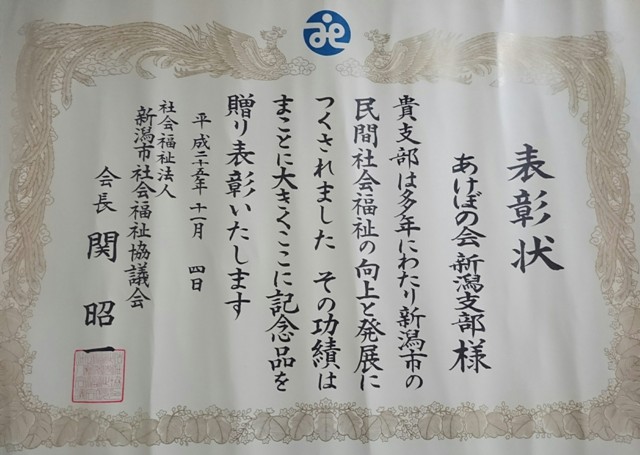 表彰状
あけぼの会 新潟支部 様
貴支部は多年にわたり新潟市の
民間社会福祉の向上と発展に
つくされました その功績は
まことに大きくここに記念品を
贈り表彰いたします
平成二十五年 十一月 四日
社会福祉法人
新潟市社会福祉協議会
会長 関 昭一